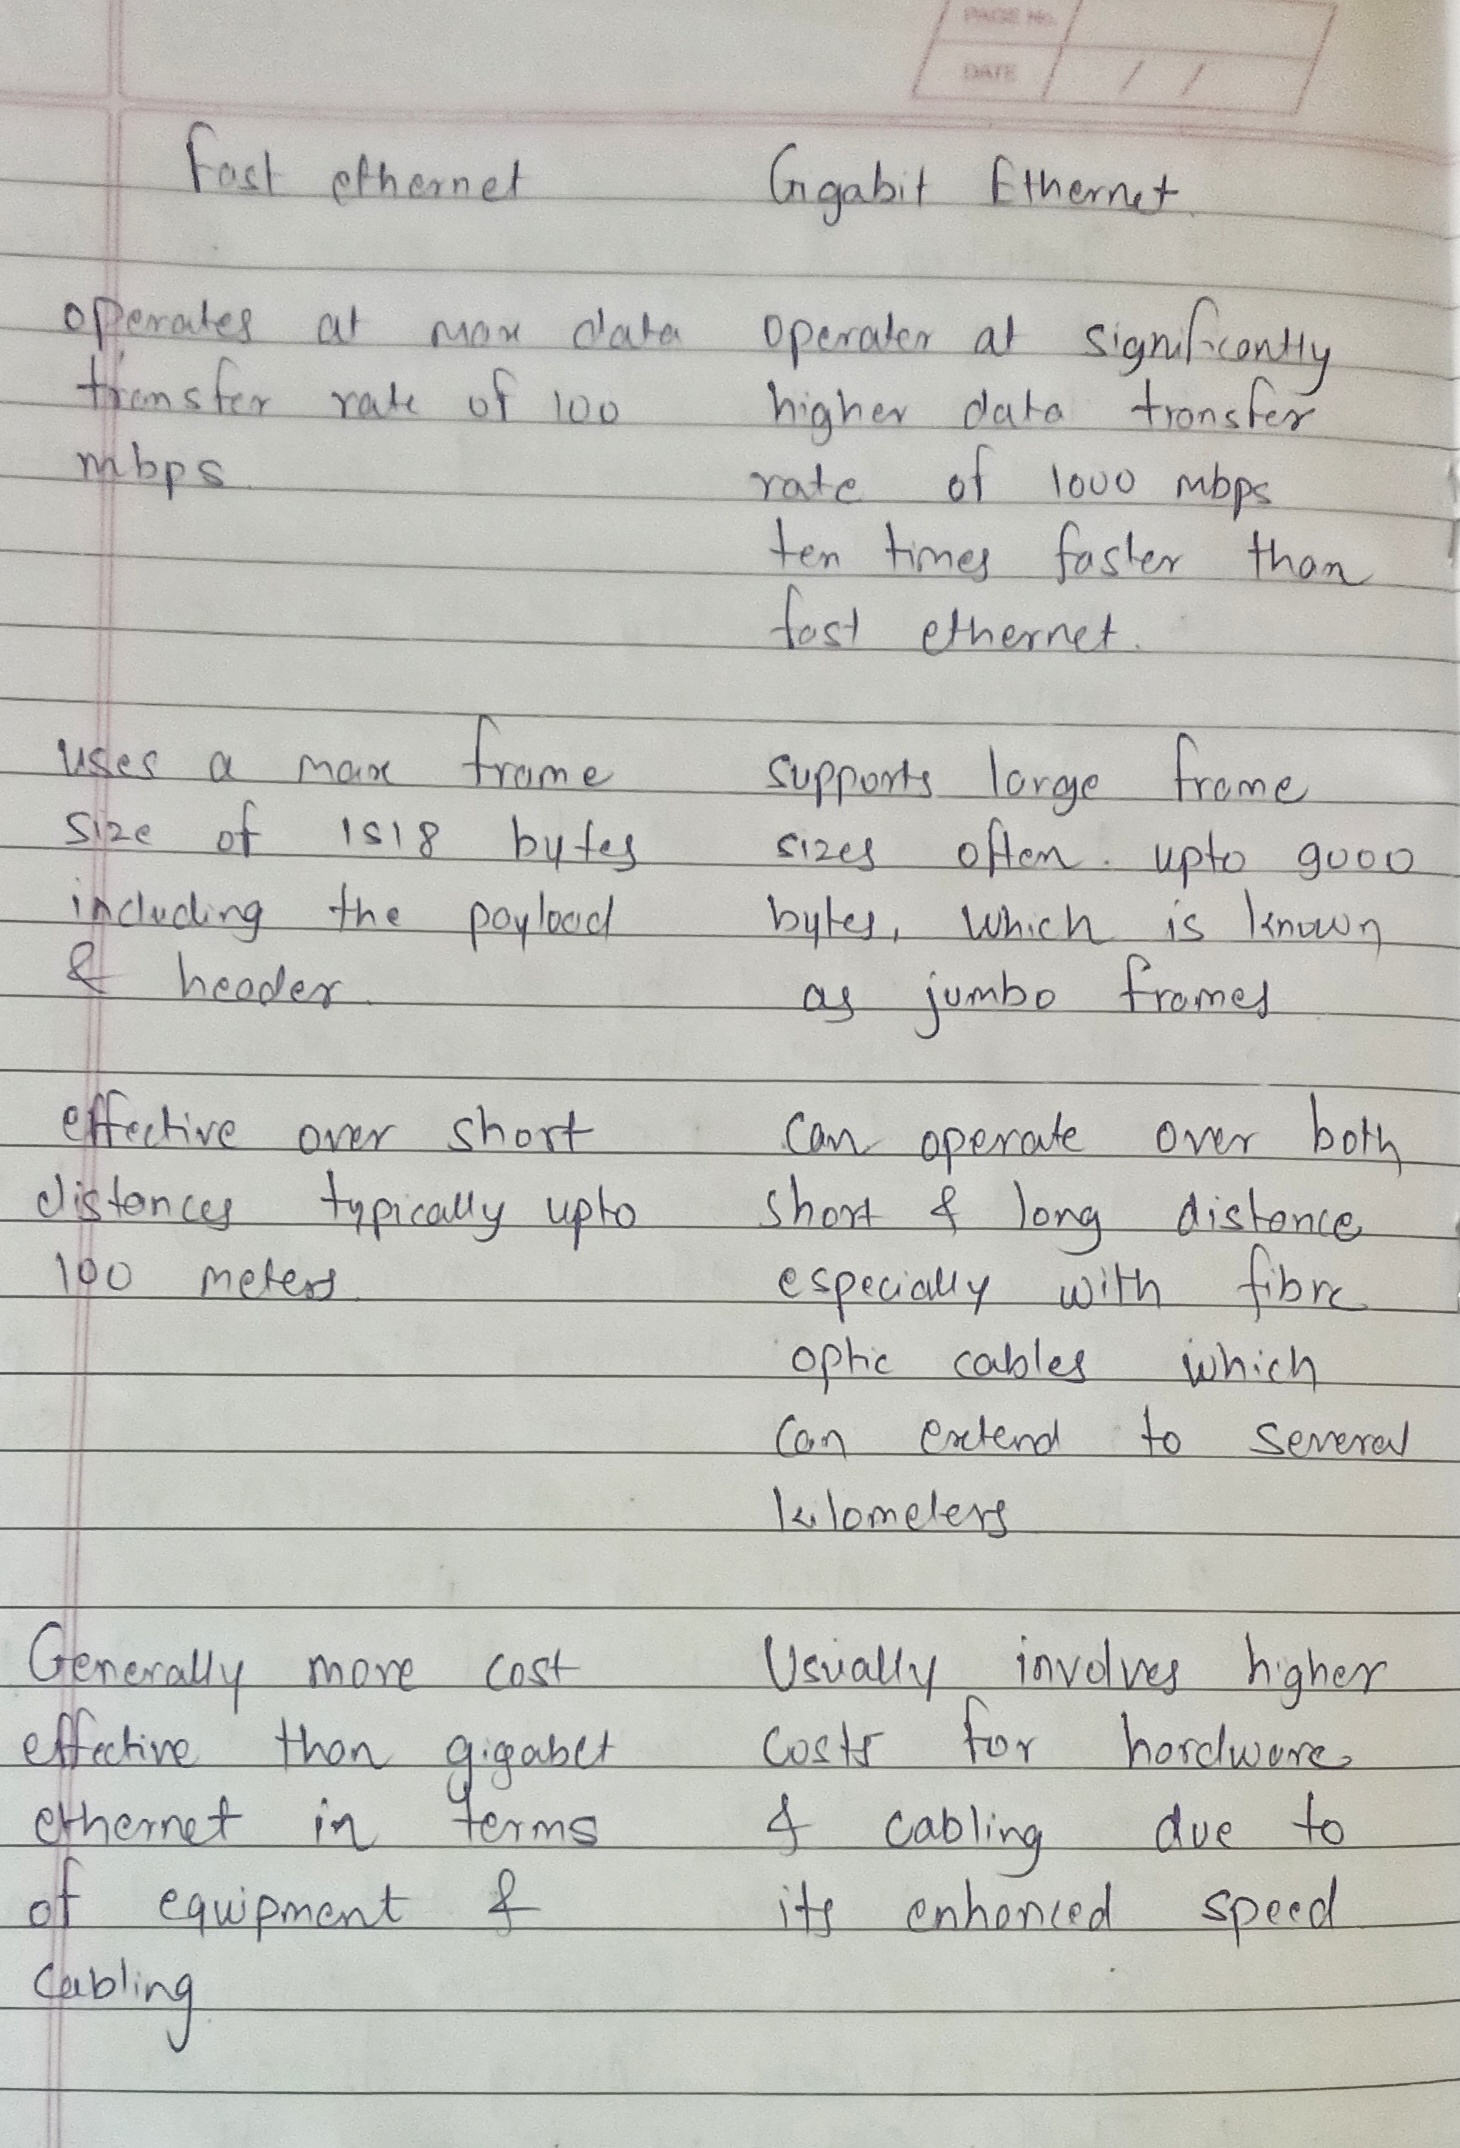 PAGE No.
DATE / /
Fast ethernet
Gigabit Ethernet.
operates at max data
transfer rate of 100
mbps.
operates at significantly
higher data transfer
rate of 1000 mbps
ten times faster than
fast ethernet.
uses a max frame
size of 1518 bytes
including the payload
& header.
supports large frame
sizes often. upto 9000
bytes, which is known
as jumbo frames
effective over short
distances typically upto
100 meters.
can operate over both
short & long distance
especially with fibre
optic cables which
can extend to several
kilometers
Generally more cost
effective than gigabit
ethernet in terms
of equipment &
cabling
Usually involves higher
costs for hardware
& cabling due to
its enhanced speed